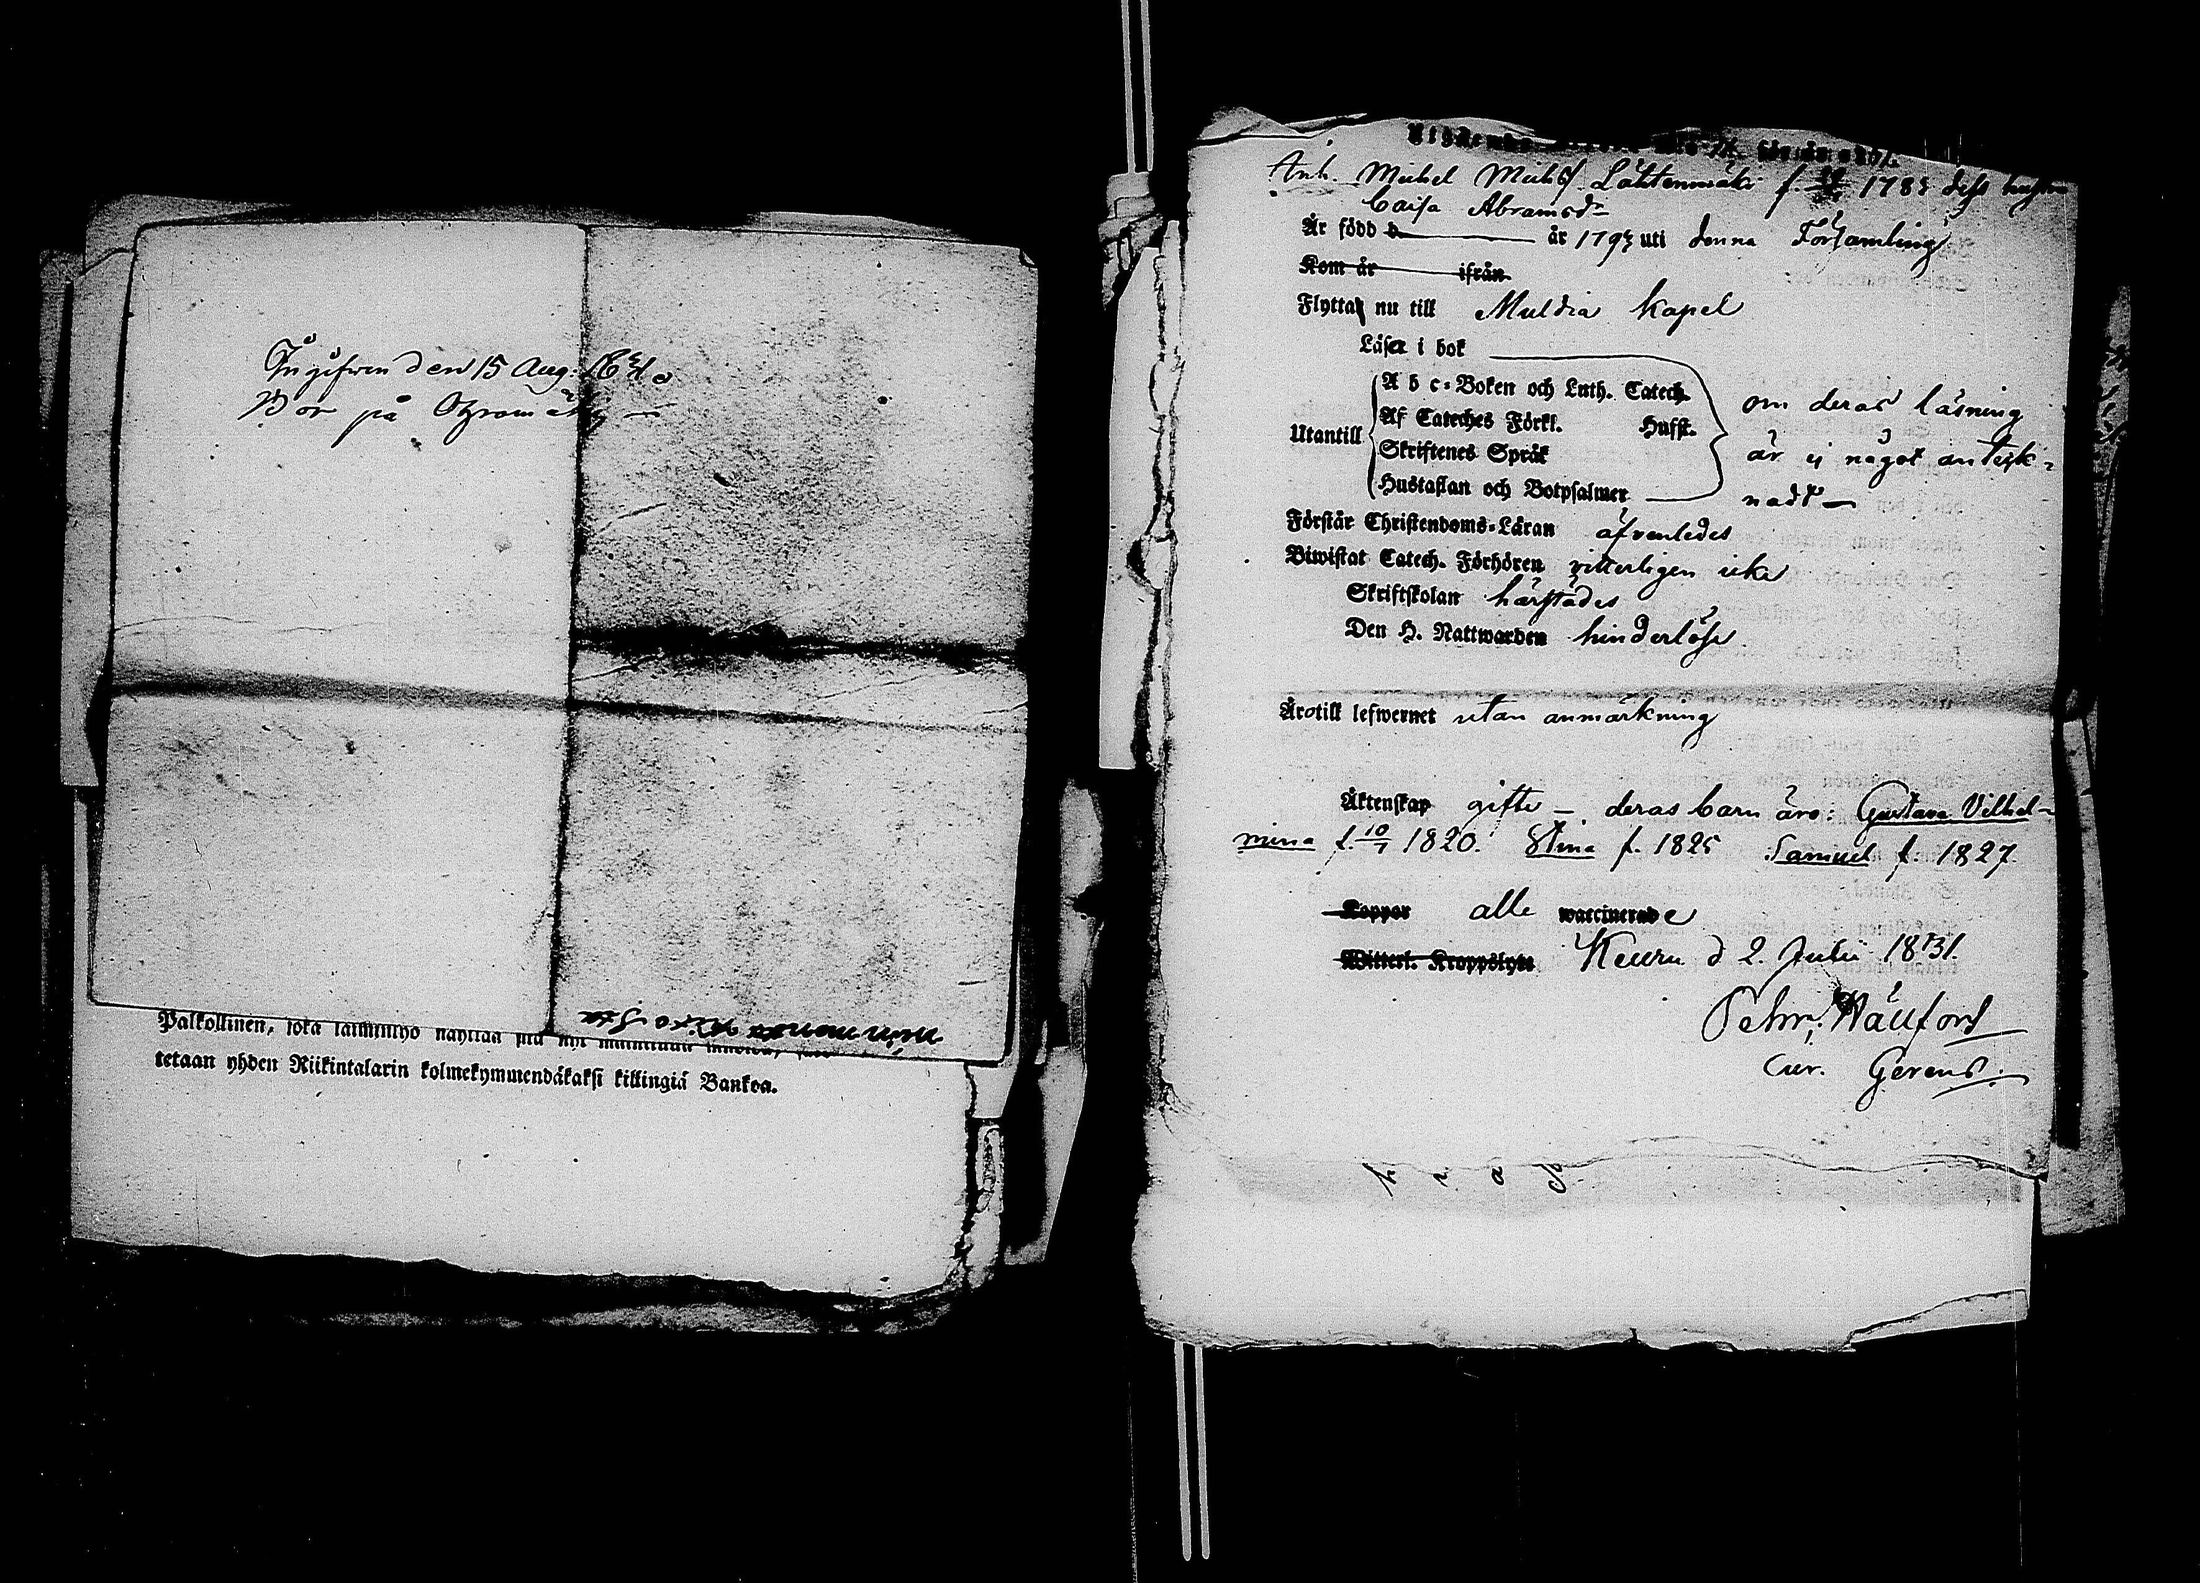 Ingifven den 15 Aug. 1831.
Bor på
Palkollinen, joka
tetaan yhden Riikintalarin kolmekymmendäkaksi killingiä Bankoa.
Anh. Michel Michs. Lähtenmäki f. 1785 dess hustru
Caisa Abramsdr
Är född d. år 1793 uti denna Församling
Kom år ifrån
Flytta nu till Muldia Kapel
Läser i bok
A b c-Boken och Luth. Catech. om deras läsning
Af Cateches Förkl. Husft.
Utantill
Skriftenes Språk är ej något anteck-
Hustaflan och Botpsalmer nadt
Förstår Christendoms-Läran äfvenledes
Biwistat Catech. Förhören vitterligen icke
Skriftskolan härstädes
Den H. Nattwarden hinderlöse
Äro till lefwernet utan anmärkning
Äktenskap gifte – deras barn äro: Gustava Vilhel-
mina f. 10/7 1820. Stina f. 1825 Samuel f. 1827.
Koppor alle waccinerade
Witterl. Kroppslyte Keuru d 2. Julii 1831.
Pehr
Cur. Gerens.